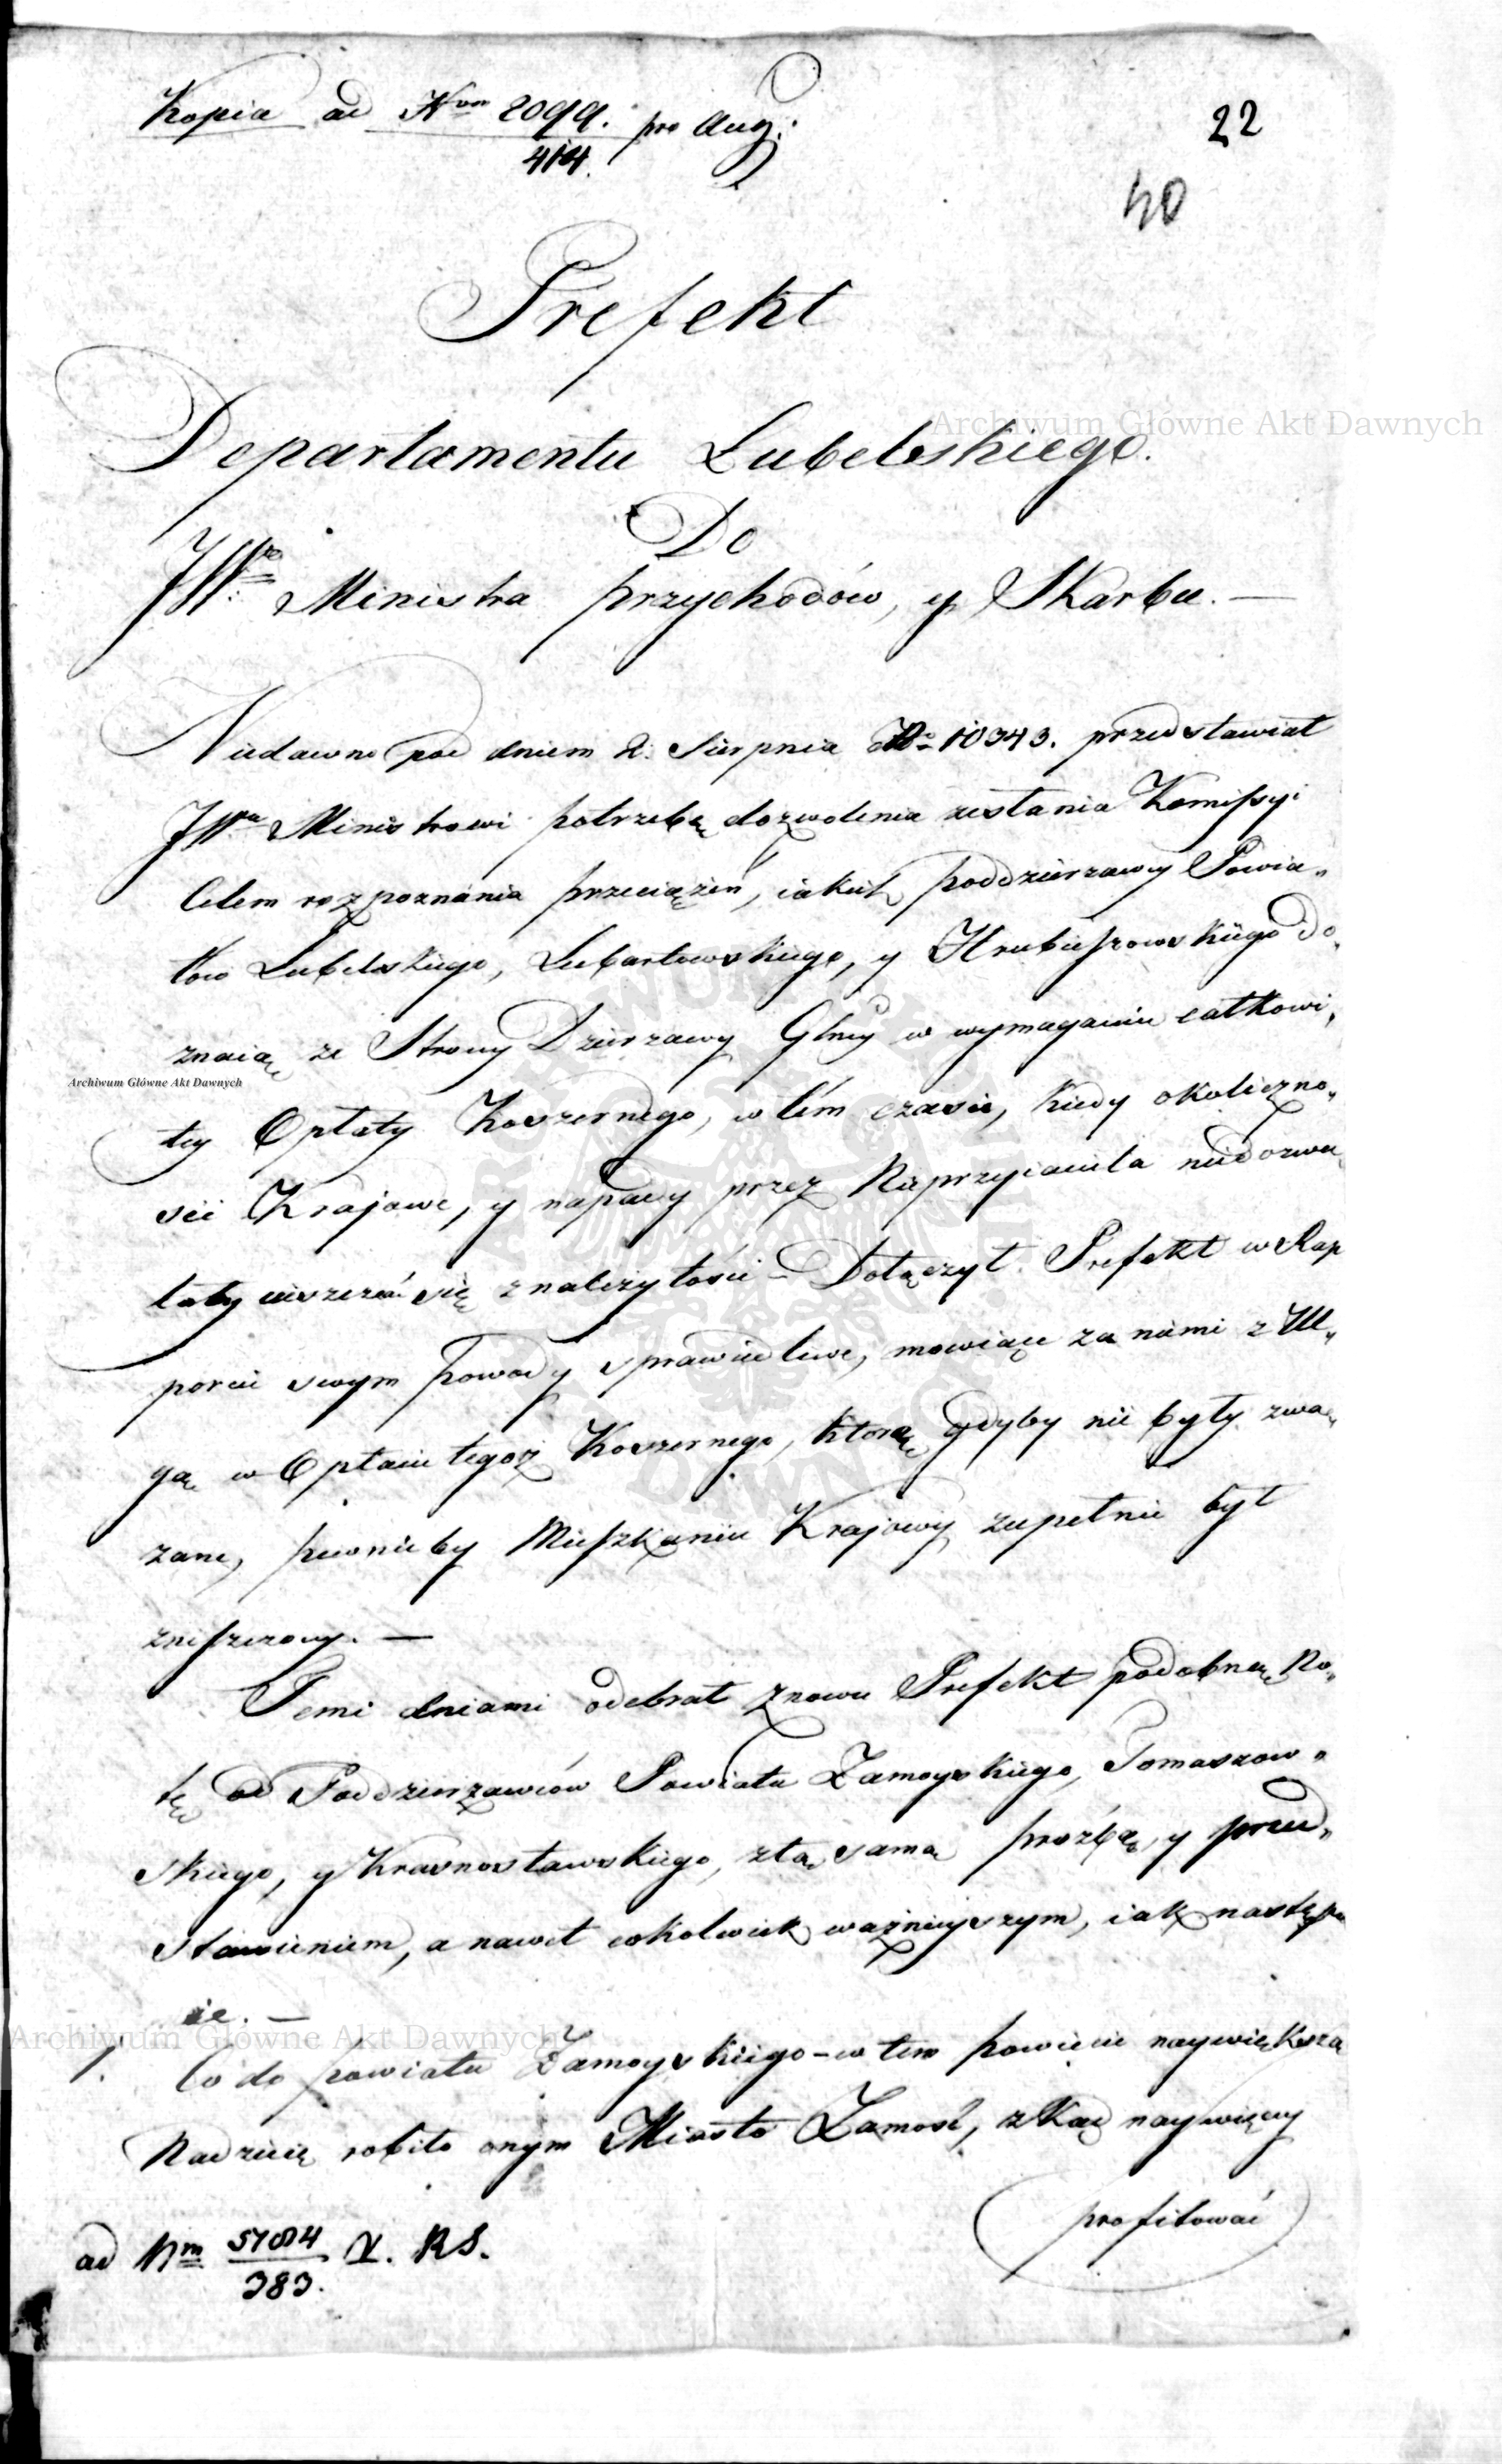 Kopia ad Nrm 2099. pro Aug:
414.
22
40
Prefekt
Departamentu Lubelskiego.
Do
JWgo Ministra Przychodów, y Skarbu. —
Archiwum Główne Akt Dawnych
Niedawno pod dniem 2. Sierpnia No 10343. przedstawiał
JWmu Ministrowi potrzebę dozwolenia zesłania Komissyi
Celem rozpoznania przeciążeń, iakich poddzierzawcy Powia„
tow Lubelskiego, Lubartowskiego, y Hrubieszowskiego do„
znaią ze Strony Dzierzawy Glney w wymaganiu całkowi„
Archiwum Główne Akt Dawnych
tey Opłaty Koszernego, w tém czasie, kiedy okoliczno„
ści Krajowe, y napady przez Nieprzyiaciela niedozwa„
lały uiszczać się z należytości – Dołączył Prefekt w Rap
porcie swym Powody sprawiedliwe, mowiące za niemi z Ul„
gą w Opłacie tegoż Koszernego, ktore gdyby nie były zwa„
żane, pewnieby Mieszkaniec Krajowy zupełnie był
zniszczony. —
Temi dniami odebrał znowu Prefekt podobną No„
tę od Poddzierzawców Powiatu Zamoyskiego, Tomaszow„
skiego, y Krasnostawskiego, z tą samą prozbą, y przed„
stawieniem, a nawet cokolwiek ważnieyszym, iak następu
ie. —
Archiwum Główne Akt Dawnych
1. Co do powiatu Zamoyskiego – w tem powiecie naywiększą
Nadzieię robiło onym Miasto Zamość, z kąd naywięcey
profitować
ad Nrm 57014 V. RS.
383.